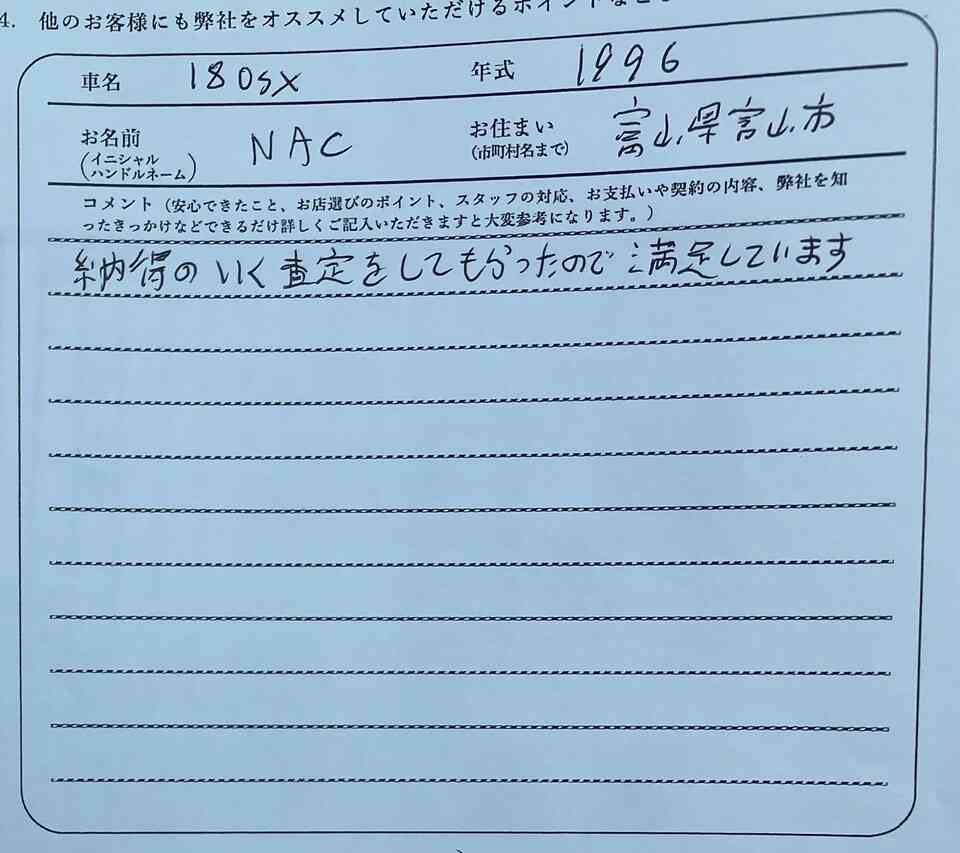 4. 他のお客様にも弊社をオススメしていただけるポイントなど
車名 180SX 年式 1996
お名前 (イニシャル ハンドルネーム) NAC お住まい (市町村名まで) 富山県富山市
コメント（安心できたこと、お店選びのポイント、スタッフの対応、お支払いや契約の内容、弊社を知
ったきっかけなどできるだけ詳しくご記入いただきますと大変参考になります。）
納得のいく査定をしてもらったので満足しています